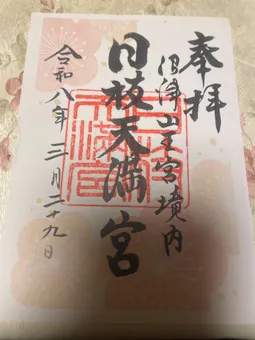 奉拝
沼津山王宮境内
日枝天満宮
令和八年三月二十九日